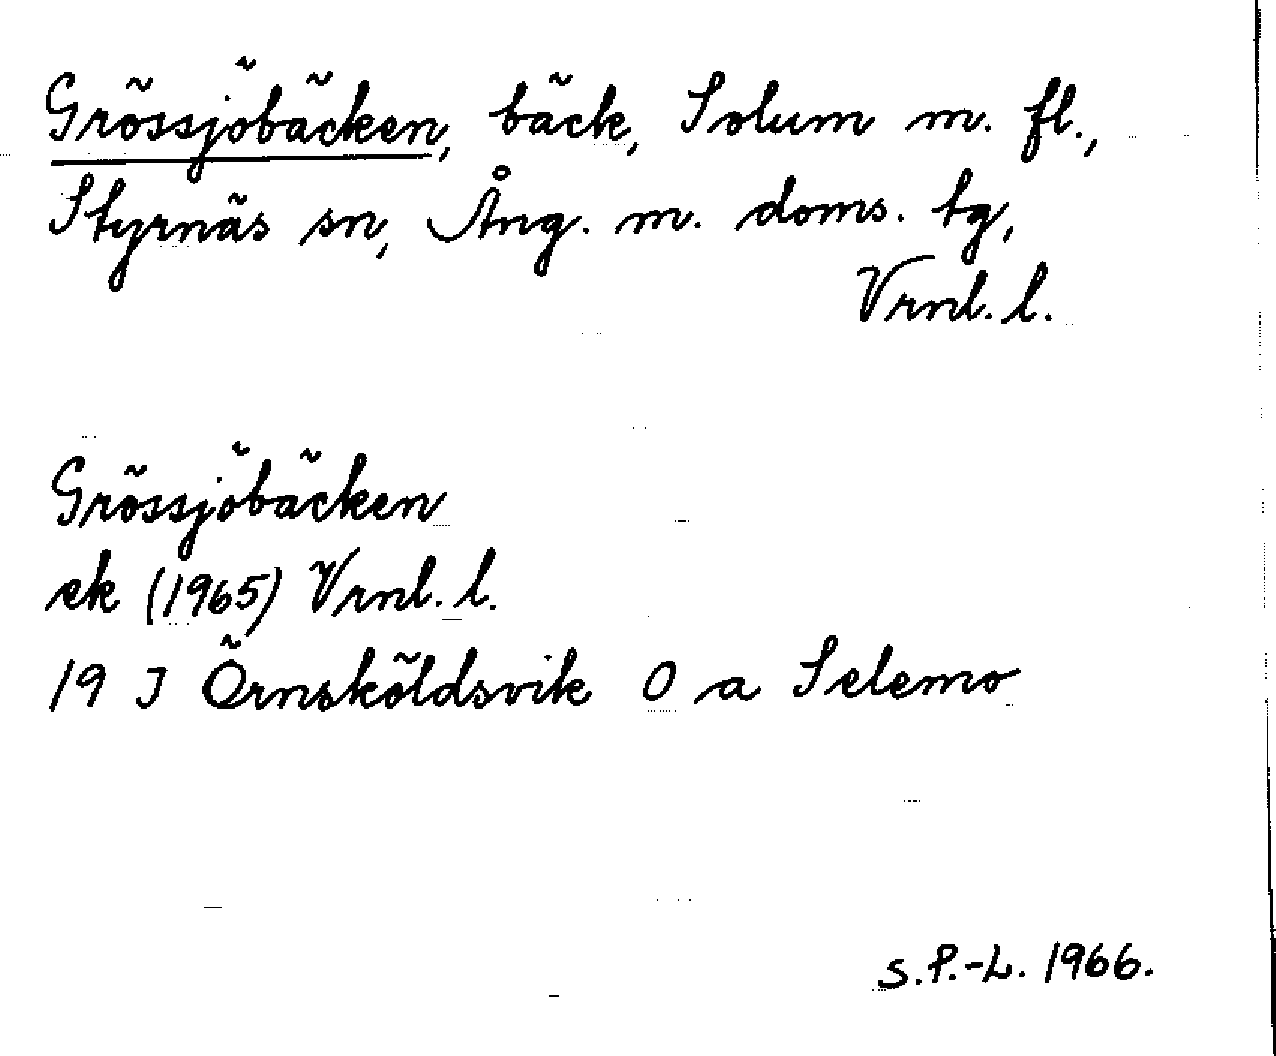 Grössjöbäcken, bäck, Solum m. fl.,
Styrnäs sn, Ång. m. doms. tg,
Vrnl. l.
Grössjöbäcken
ek (1965) Vrnl. l.
19 J Örnsköldsvik O a Selemo
S.P.-L. 1966.